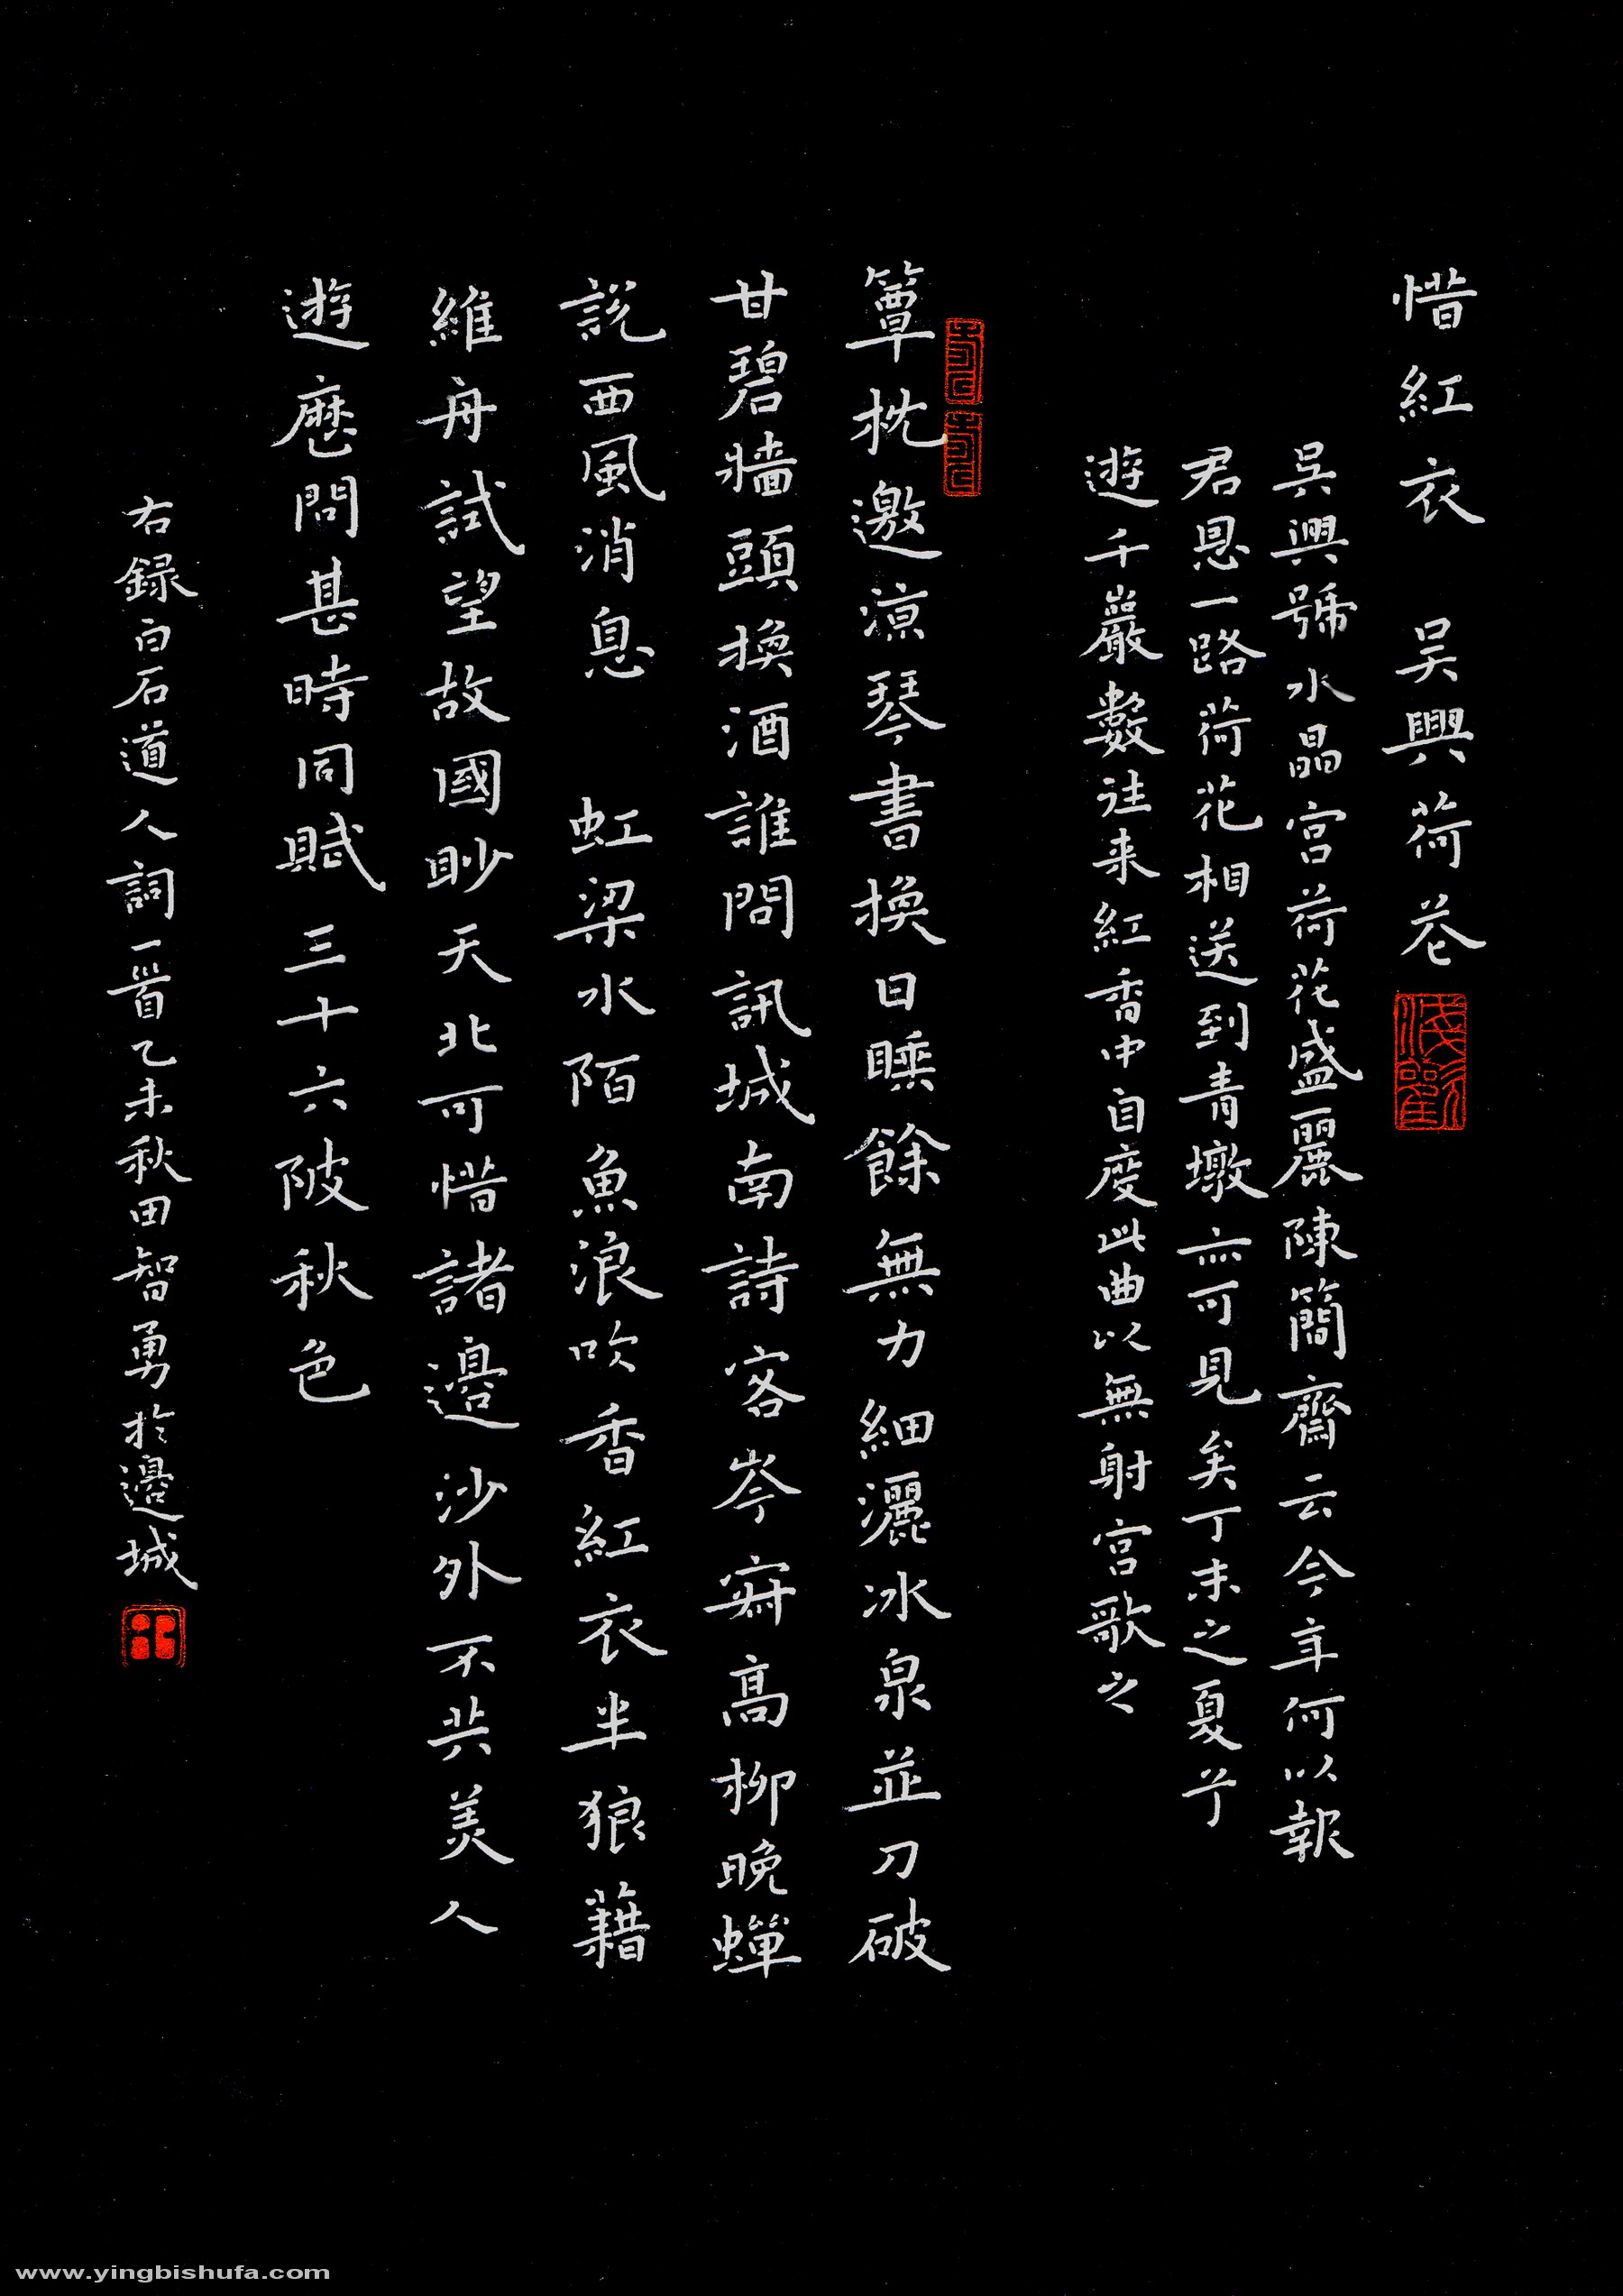 惜紅衣 吴興荷花
吳興號水晶宮荷花盛麗陳簡齋云今年何以報
君恩一路荷花相送到青墩亦可見矣丁未之夏予
遊千巖數往来紅香中自度此曲以無射宮歌之
簟枕邀涼琴書換日睡餘無力細灑冰泉並刀破
甘碧牆頭換酒誰問訊城南詩客岑寂高柳晚蟬
説西風消息 虹梁水陌魚浪吹香紅衣半狼藉
維舟試望故國眇天北可惜諸邊沙外不共美人
遊歷問甚時同賦三十六陂秋色
右録白石道人詞一首乙未秋田智勇於邊城
www.yingbishufa.com